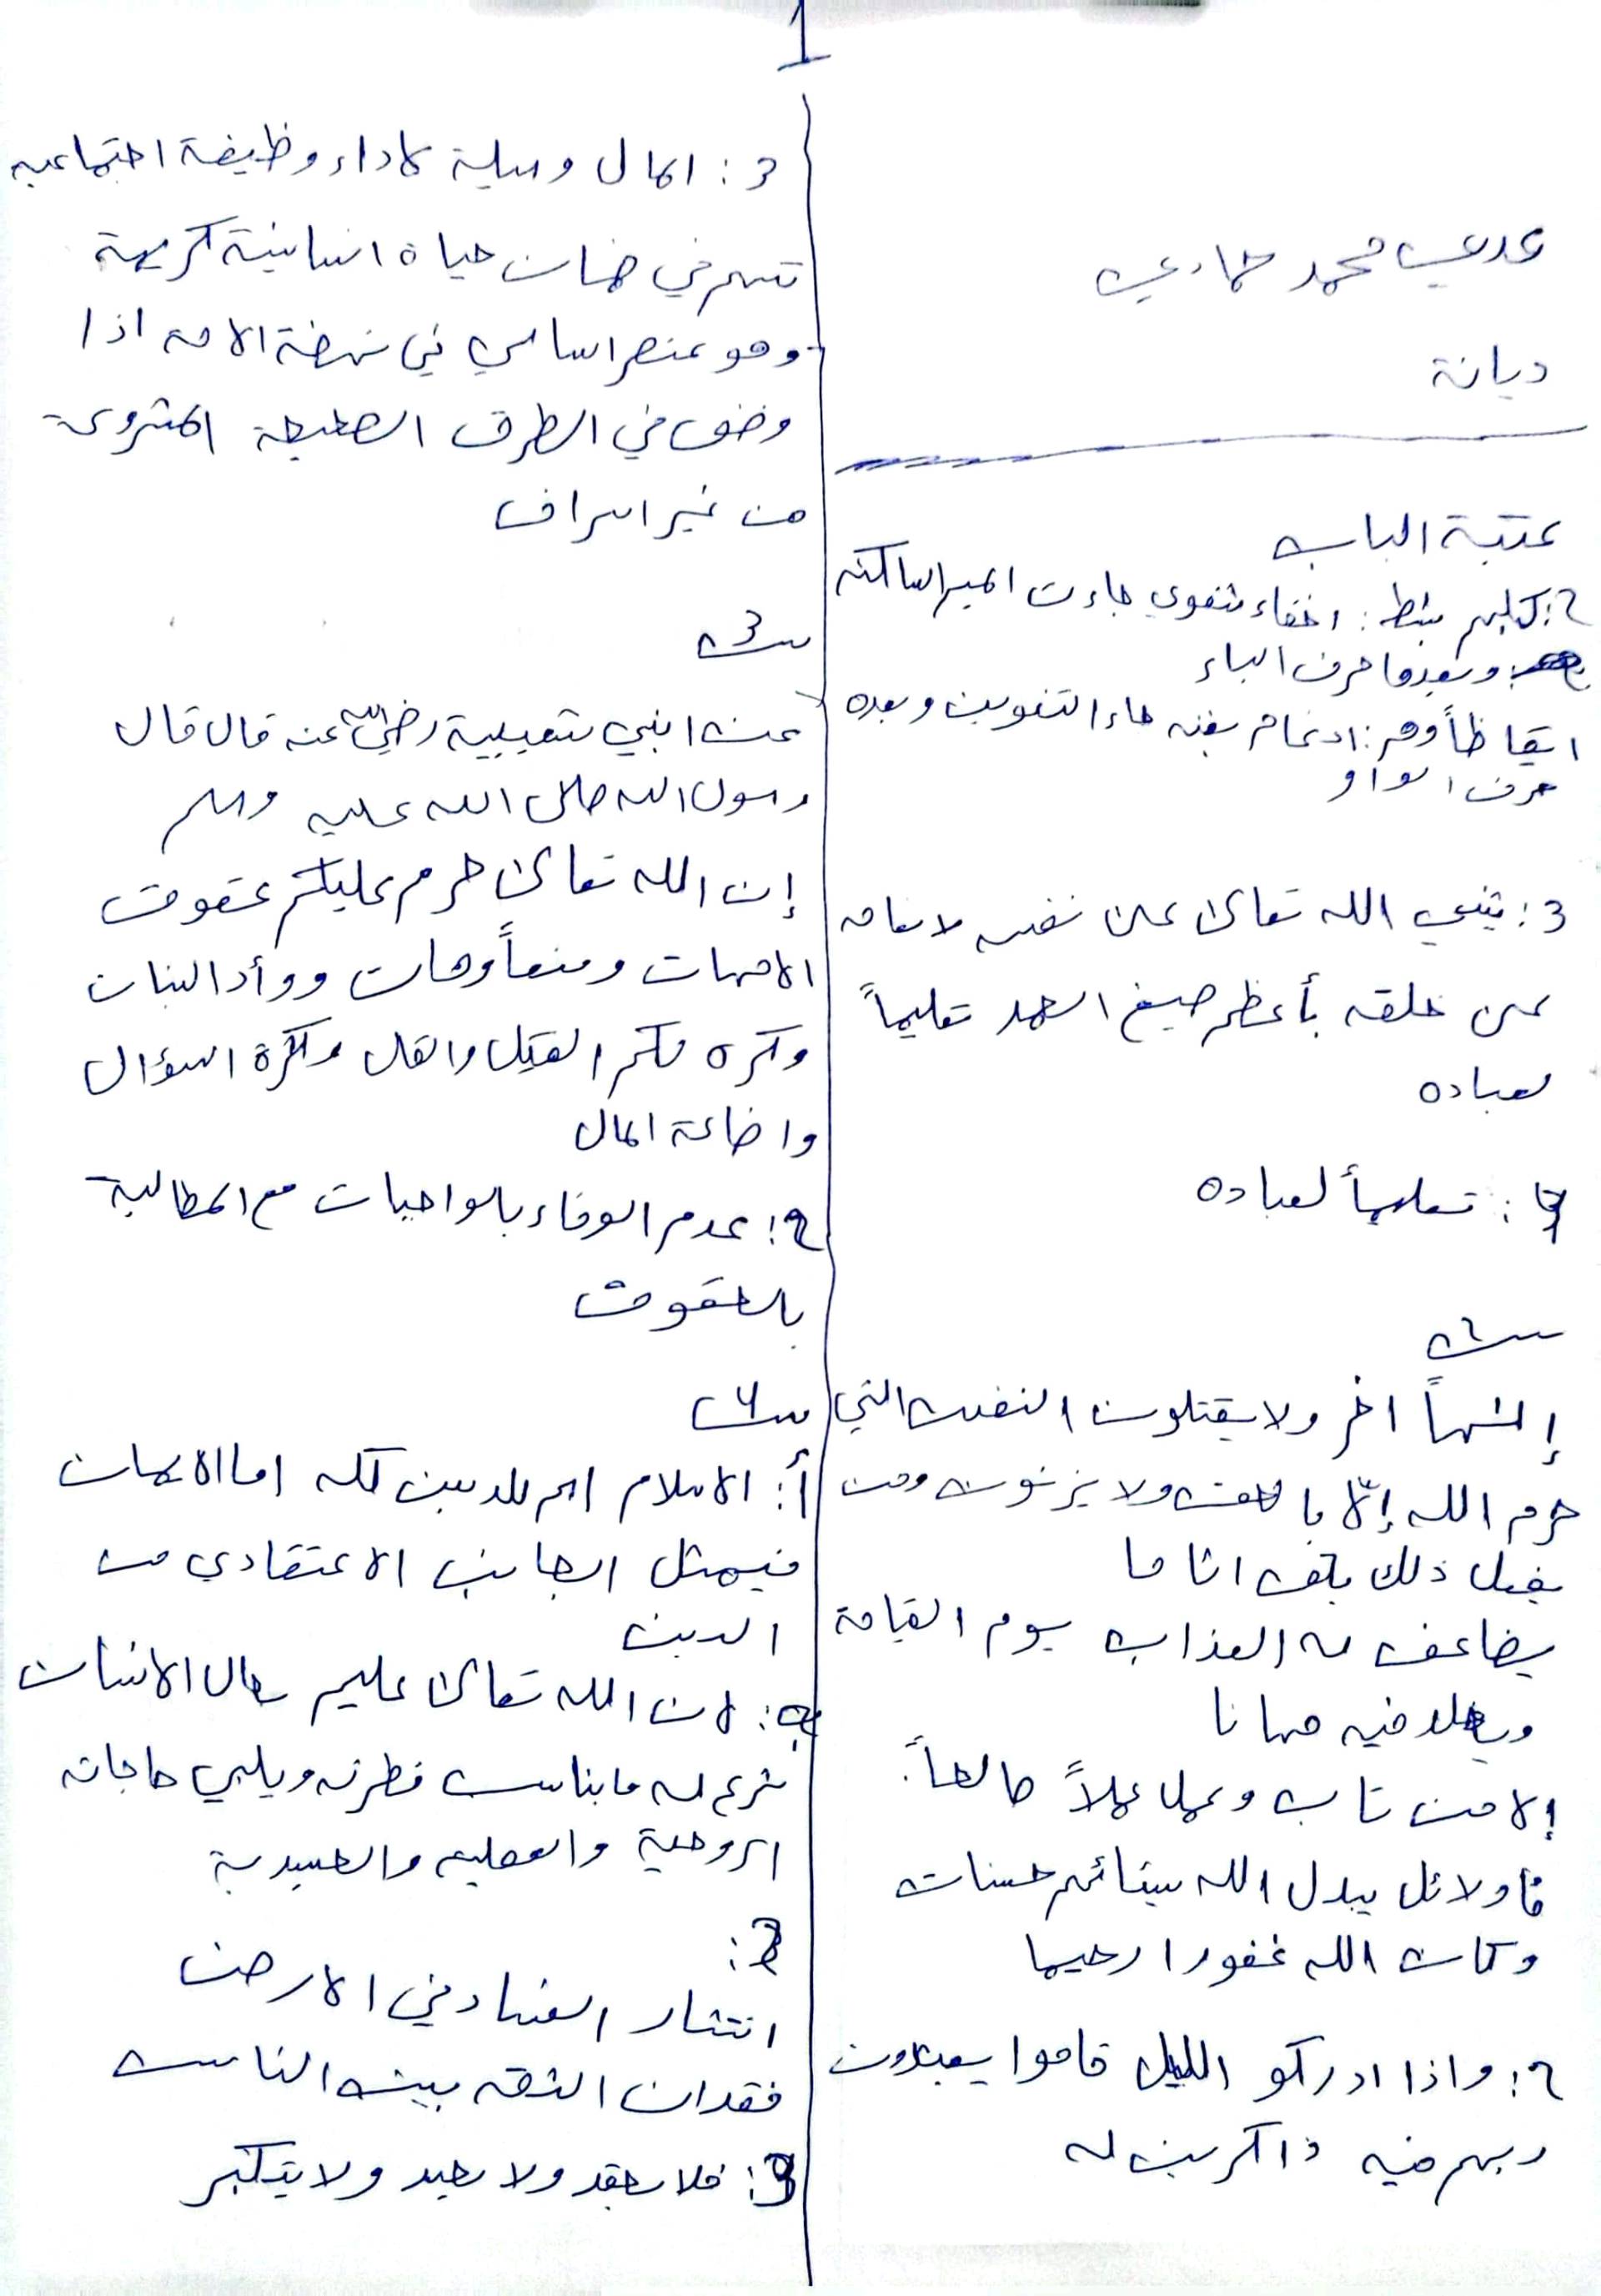 1
عدي محمد حمادي
ديانة
عتبة الباب
2: كلبهم بسط: اخفاء شفوي جاءت الميم الساكنه
وبعدها حرف الباء
ايقاظاً وهم: ادغام بغنه جاء التنوين وبعده
حرف الواو
3: يثني الله تعالى على نفسه لانعامه
على خلقه بأعظم صيغ الحمد تعليماً
لعباده
4: تعليماً لعباده
س2
إلهاً اخر ولا يقتلون النفس التي
حرم الله إلّا بالحق ولا يزنون ومن
يفعل ذلك يلق اثاما
يضاعف له العذاب يوم القيامة
ويخلد فيه مهانا
إلا من تاب وعمل عملاً صالحاً
فأولائل يبدل الله سيئاتهم حسنات
وكان الله غفورا رحيما
2: واذا ادركو الليل قاموا يعبدون
ربهم فيه ذاكرين له
3: المال وسيلة لاداء وظيفة اجتماعيه
تسهم في ضمان حياة انسانية كريمة
وهو عنصر اساسي في نهضة الامه اذا
وضف في الطرق الصحيحة المشروعة
من غير اسراف
س3
عن ابني شعيبية رضي الله عنه قال قال
رسول الله صلى الله عليه وسلم
إن الله تعالى حرم عليكم عقوق
الامهات ومنعاً وهات ووأد البنات
وكره لكم القيل والقال وكثرة السؤال
واضاعة المال
2: عدم الوفاء بالواجبات مع المطالبة
بالحقوق
س4
أ: الاسلام اسم للدين كله اما الايمان
فيمثل الجانب الاعتقادي من
الدين
لان الله تعالى عليم بحال الانسان
شرع له ما يناسب فطرته ويلبي حاجاته
الروحية والعقليه والجسدية
2:
انتشار الفساد في الارض
فقدان الثقه بين الناس
3: فلا يحقد ولا يحسد ولا يتكبر